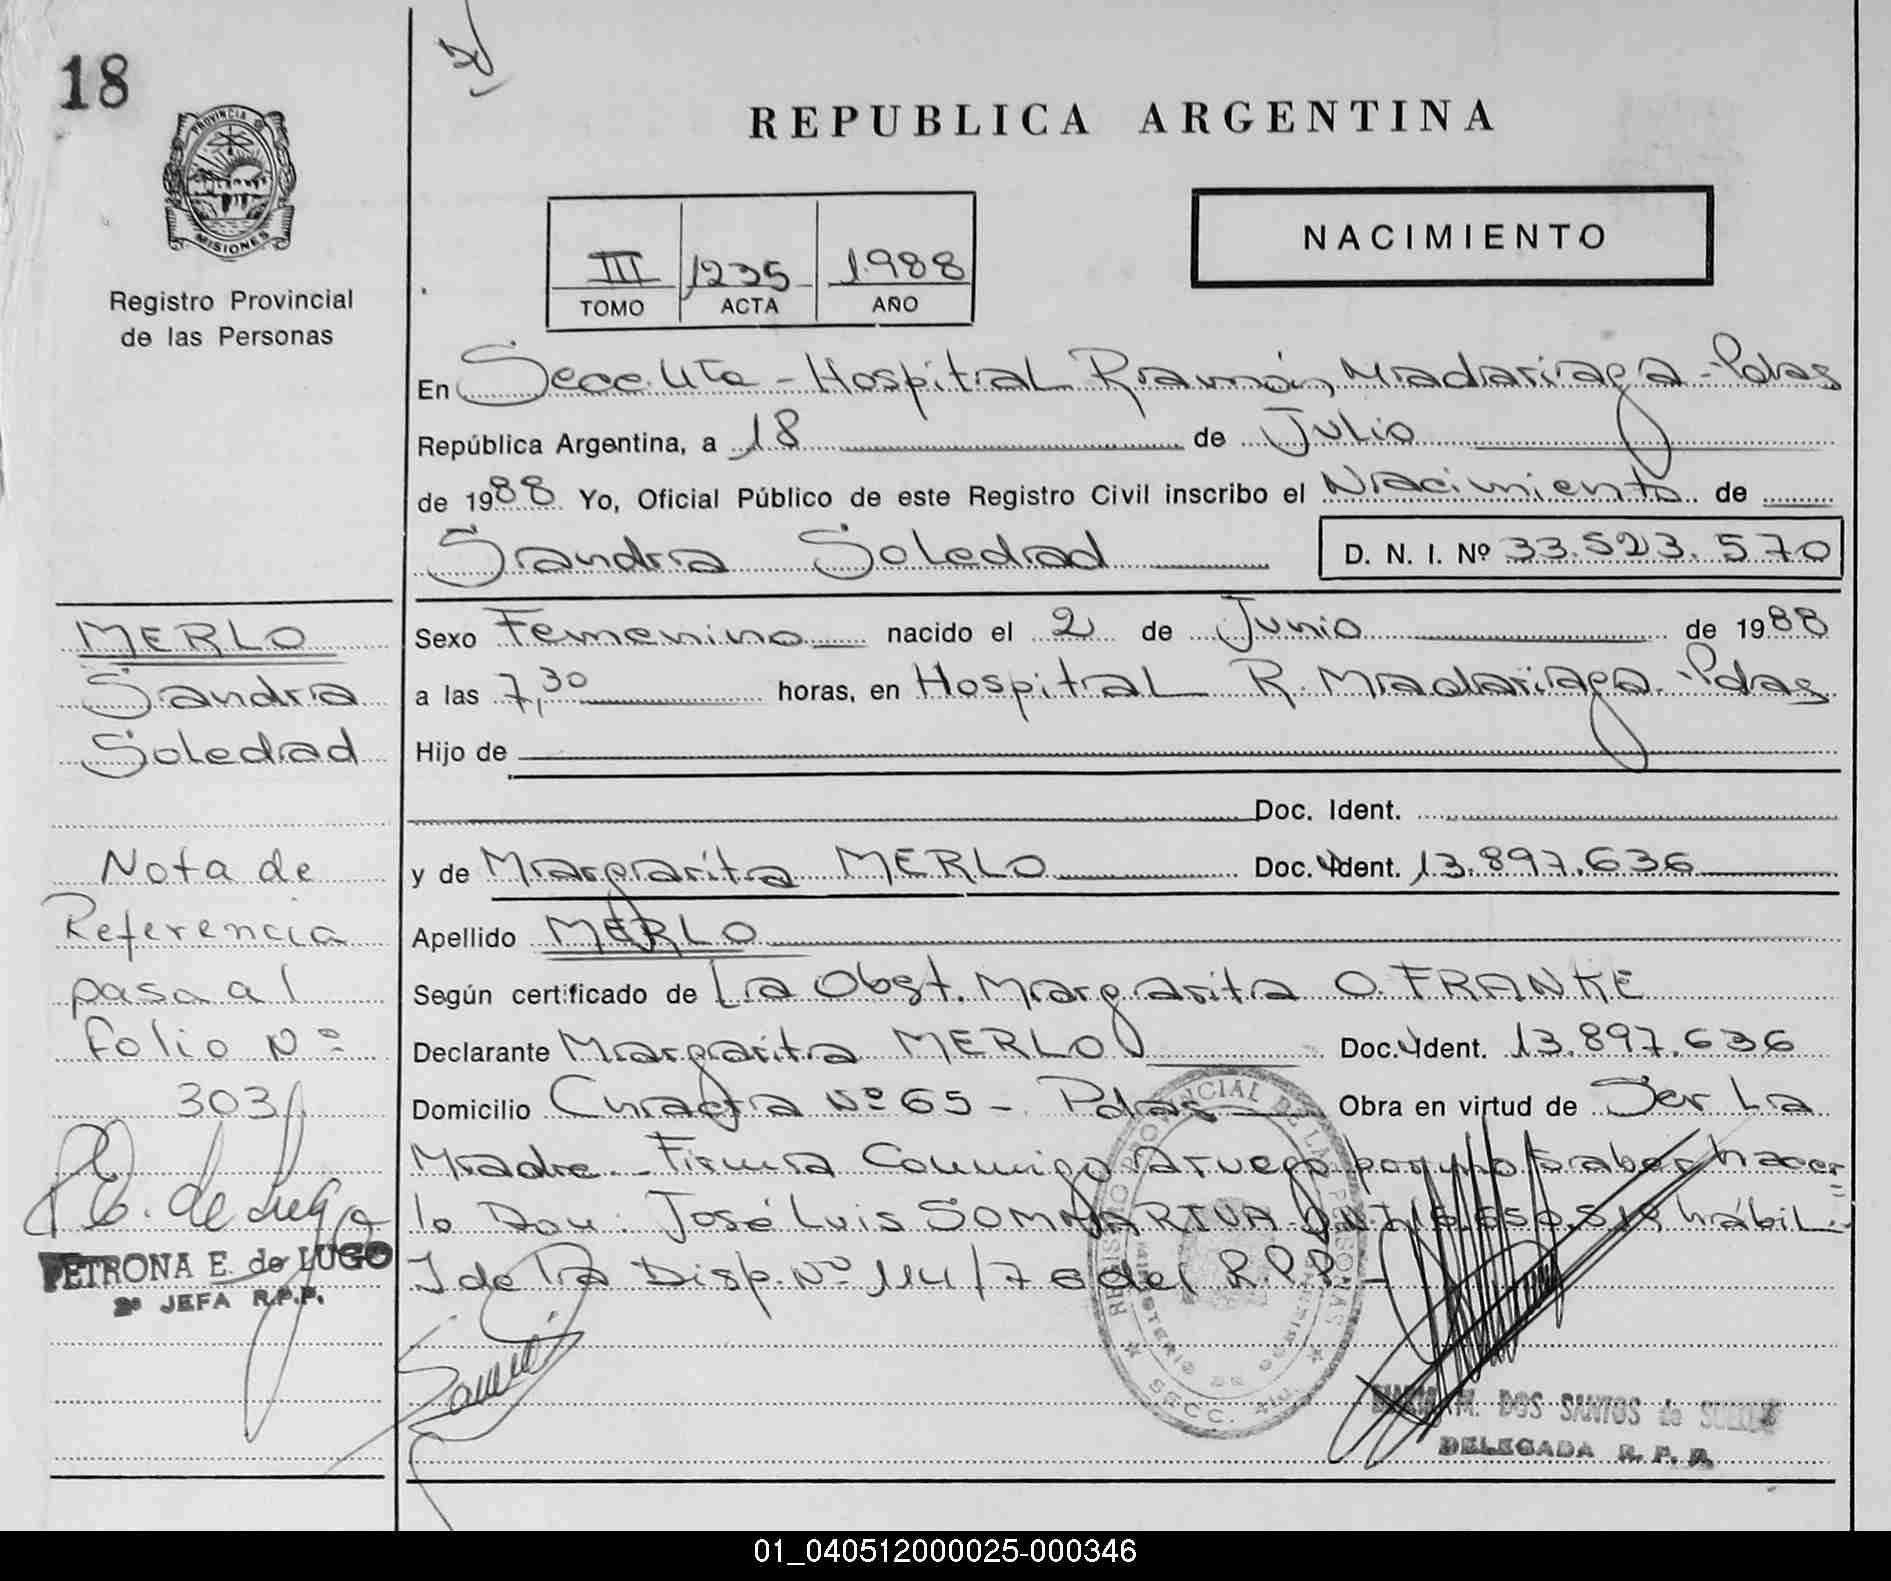 18
PROVINCIA DE
MISIONES
Registro Provincial
de las Personas
REPUBLICA ARGENTINA
III 1235 1988
TOMO ACTA AÑO
NACIMIENTO
En Secc. 4ta - Hospital Ramón Madariaga - Pdas
República Argentina, a 18 de Julio
de 1988 Yo, Oficial Público de este Registro Civil inscribo el Nacimiento de
Sandra Soledad D. N. I. Nº 33.523.570
MERLO
Sandra
Soledad
Sexo Femenino nacido el 2 de Junio de 1988
a las 7,30 horas, en Hospital R. Madariaga - Pdas
Hijo de
Doc. Ident.
y de Margarita MERLO Doc. Ident. 13.897.636
Apellido MERLO
Según certificado de La Obst. Margarita O. FRANKE
Declarante Margarita MERLO Doc. Ident. 13.897.636
Domicilio Nº 65 - Pdas Obra en virtud de Ser La
Madre - Firma Conmigo a ruego por no saber hacer
lo Don: José Luis SOMMARIVA DNI hábil
de la Disp. Nº 114/76 del R.P.P. -
Nota de
Referencia
pasa al
folio Nº
303
P. E. de Lugo
PETRONA E. de LUGO
2ª JEFA R.P.P.
REGISTRO PROVINCIAL DE LAS PERSONAS
MINISTERIO DE GOBIERNO
SECC. 4ta.
M. DOS SANTOS de
DELEGADA R. P. P.
01_040512000025-000346